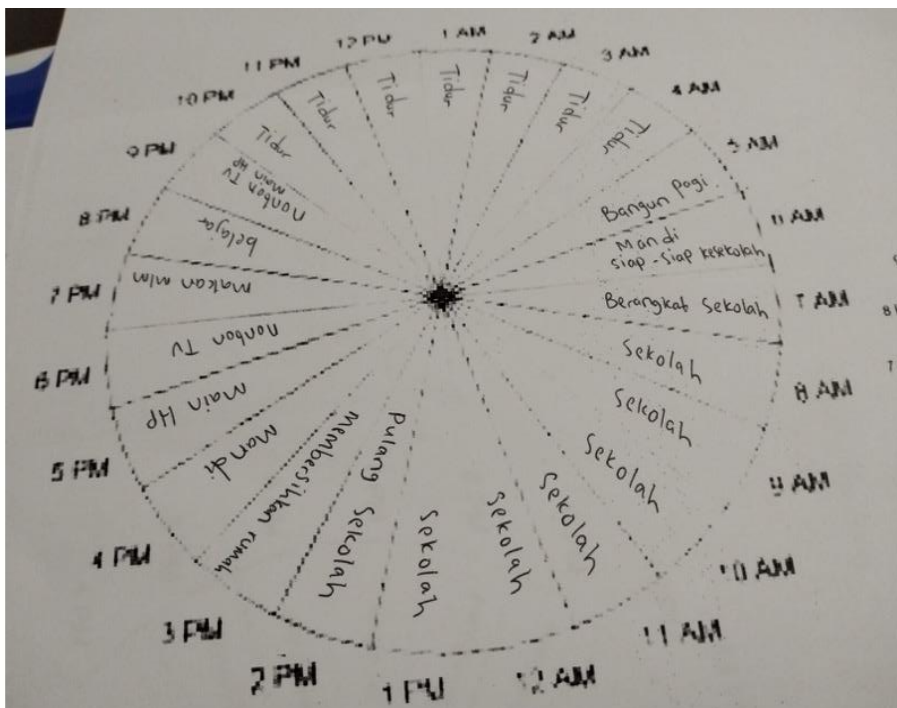 12 PM
1 AM
2 AM
3 AM
4 AM
5 AM
6 AM
7 AM
8 AM
9 AM
10 AM
11 AM
12 AM
1 PM
2 PM
3 PM
4 PM
5 PM
6 PM
7 PM
8 PM
9 PM
10 PM
11 PM
Tidur
Tidur
Tidur
Tidur
Tidur
Bangun pagi
Mandi
siap-siap kesekolah
Berangkat Sekolah
Sekolah
Sekolah
Sekolah
Sekolah
Sekolah
Sekolah
Pulang Sekolah
membersihkan rumah
mandi
main HP
nonton TV
makan mlm
belajar
nonton TV
main HP
Tidur
Tidur